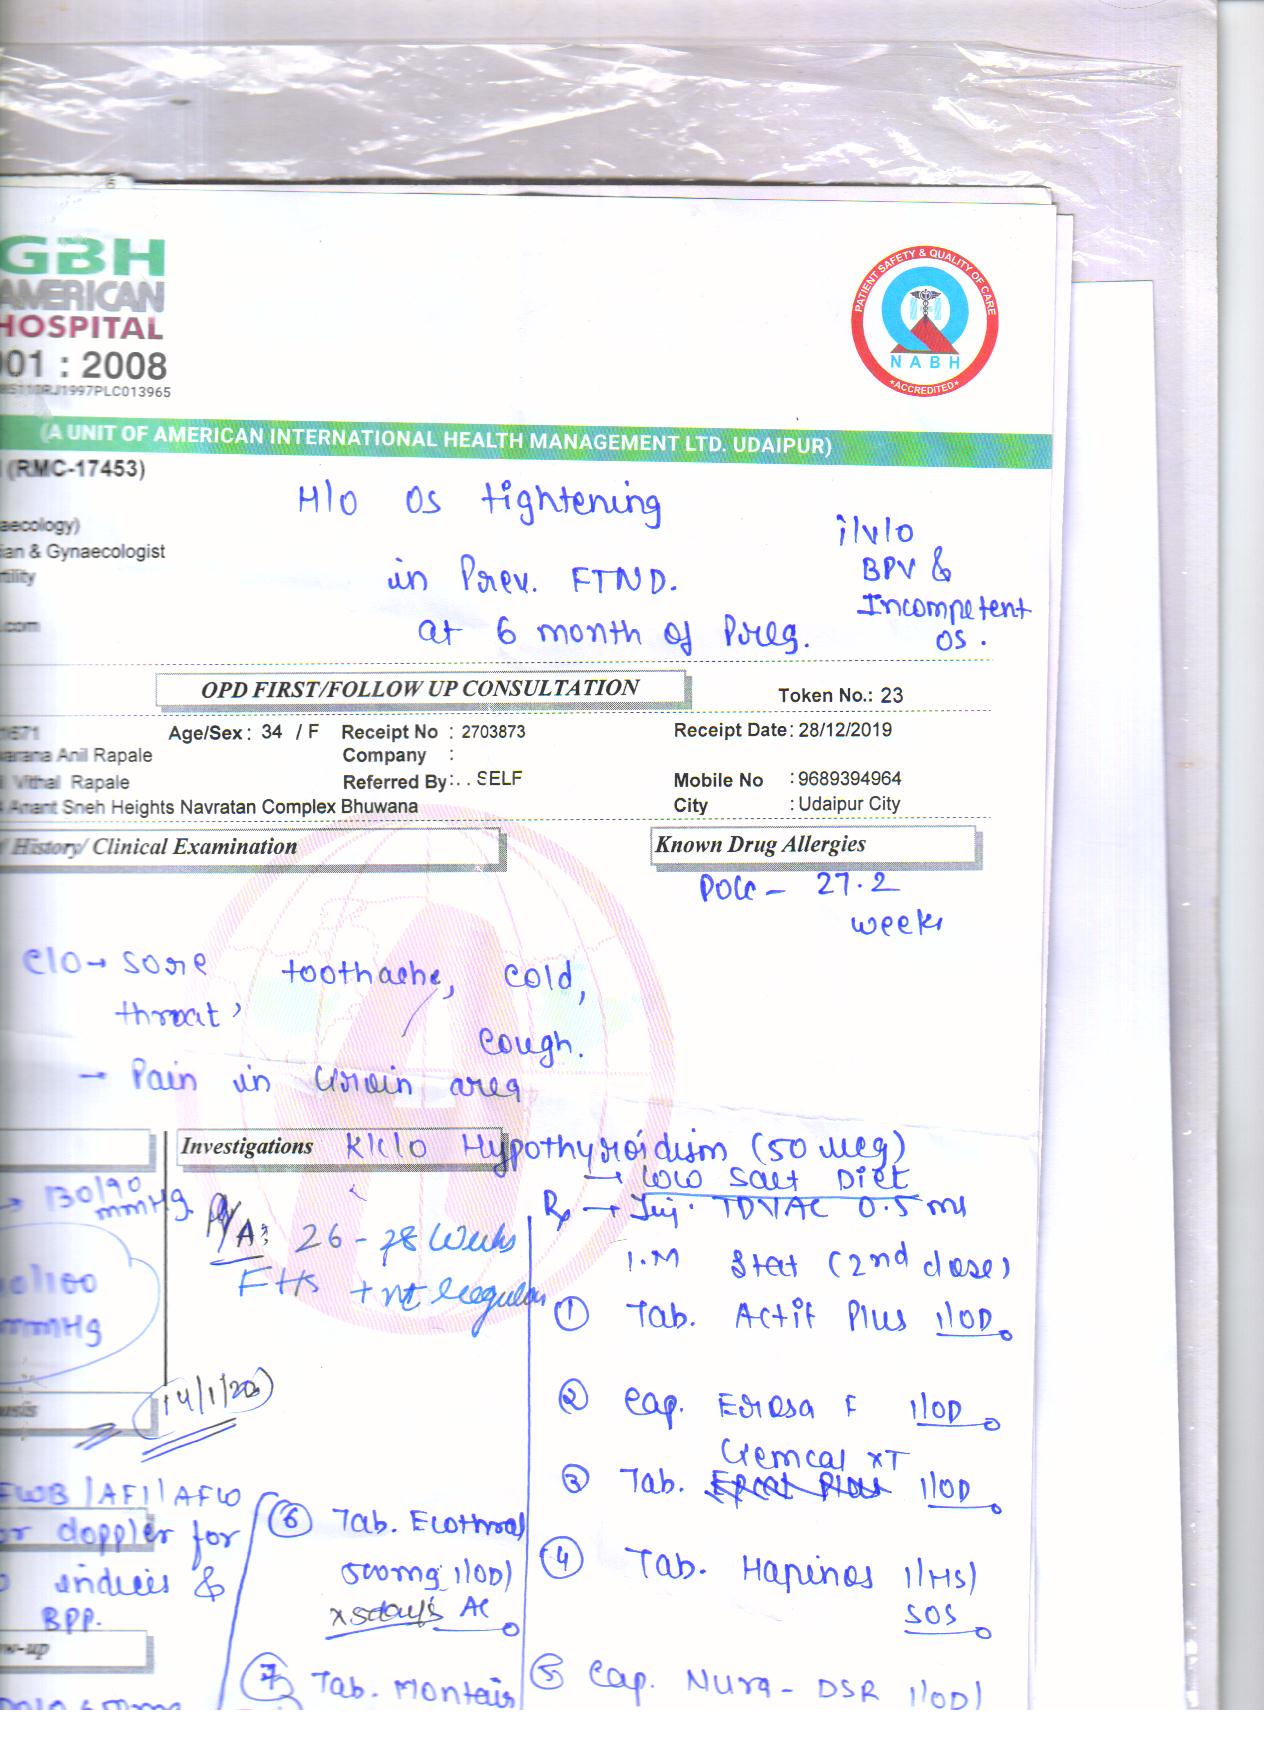 GBH
AMERICAN
HOSPITAL
001 : 2008
RJ1997PLC013965
PATIENT SAFETY & QUALITY OF CARE
NABH
*ACCREDITED*
(A UNIT OF AMERICAN INTERNATIONAL HEALTH MANAGEMENT LTD. UDAIPUR)
(RMC-17453)
aecology)
ian & Gynaecologist
rtility
.com
H/o OS tightening
in Prev. FTND.
at 6 month of Preg.
i/v/o
BPV &
Incompetent
OS.
OPD FIRST/FOLLOW UP CONSULTATION
Token No.: 23
1671 Age/Sex : 34 / F Receipt No : 2703873 Receipt Date: 28/12/2019
arana Anil Rapale Company :
Vithal Rapale Referred By:. . SELF Mobile No : 9689394964
Anant Sneh Heights Navratan Complex Bhuwana City : Udaipur City
History/ Clinical Examination
Known Drug Allergies
POG - 27.2
weeks
C/O → Sore toothache, cold,
throat,
cough.
→ Pain in Groin area
Investigations K/C/O Hypothyroidism (50 mcg)
→ Low Salt Diet
→ 130/90
mmHg
P/A: 26-28 Weeks
FHS +nt Regular
/100
mmHg
14/1/20
Rx → Inj. TDVAC 0.5 ml
I.M Stat (2nd dose)
① Tab. Actif Plus 1/OD
② Cap. Edosa F 1/OD
Gemcal XT
③ Tab. 1/OD
④ Tab. Hapinos 1/HS/
SOS
⑤ Cap. Nura-DSR 1/OD/
FWB/AFI/AFW
or doppler for
indices &
BPP.
w-up
⑥ Tab. Ecothral
500mg 1/OD/
x5days AC
⑦ Tab. Montair